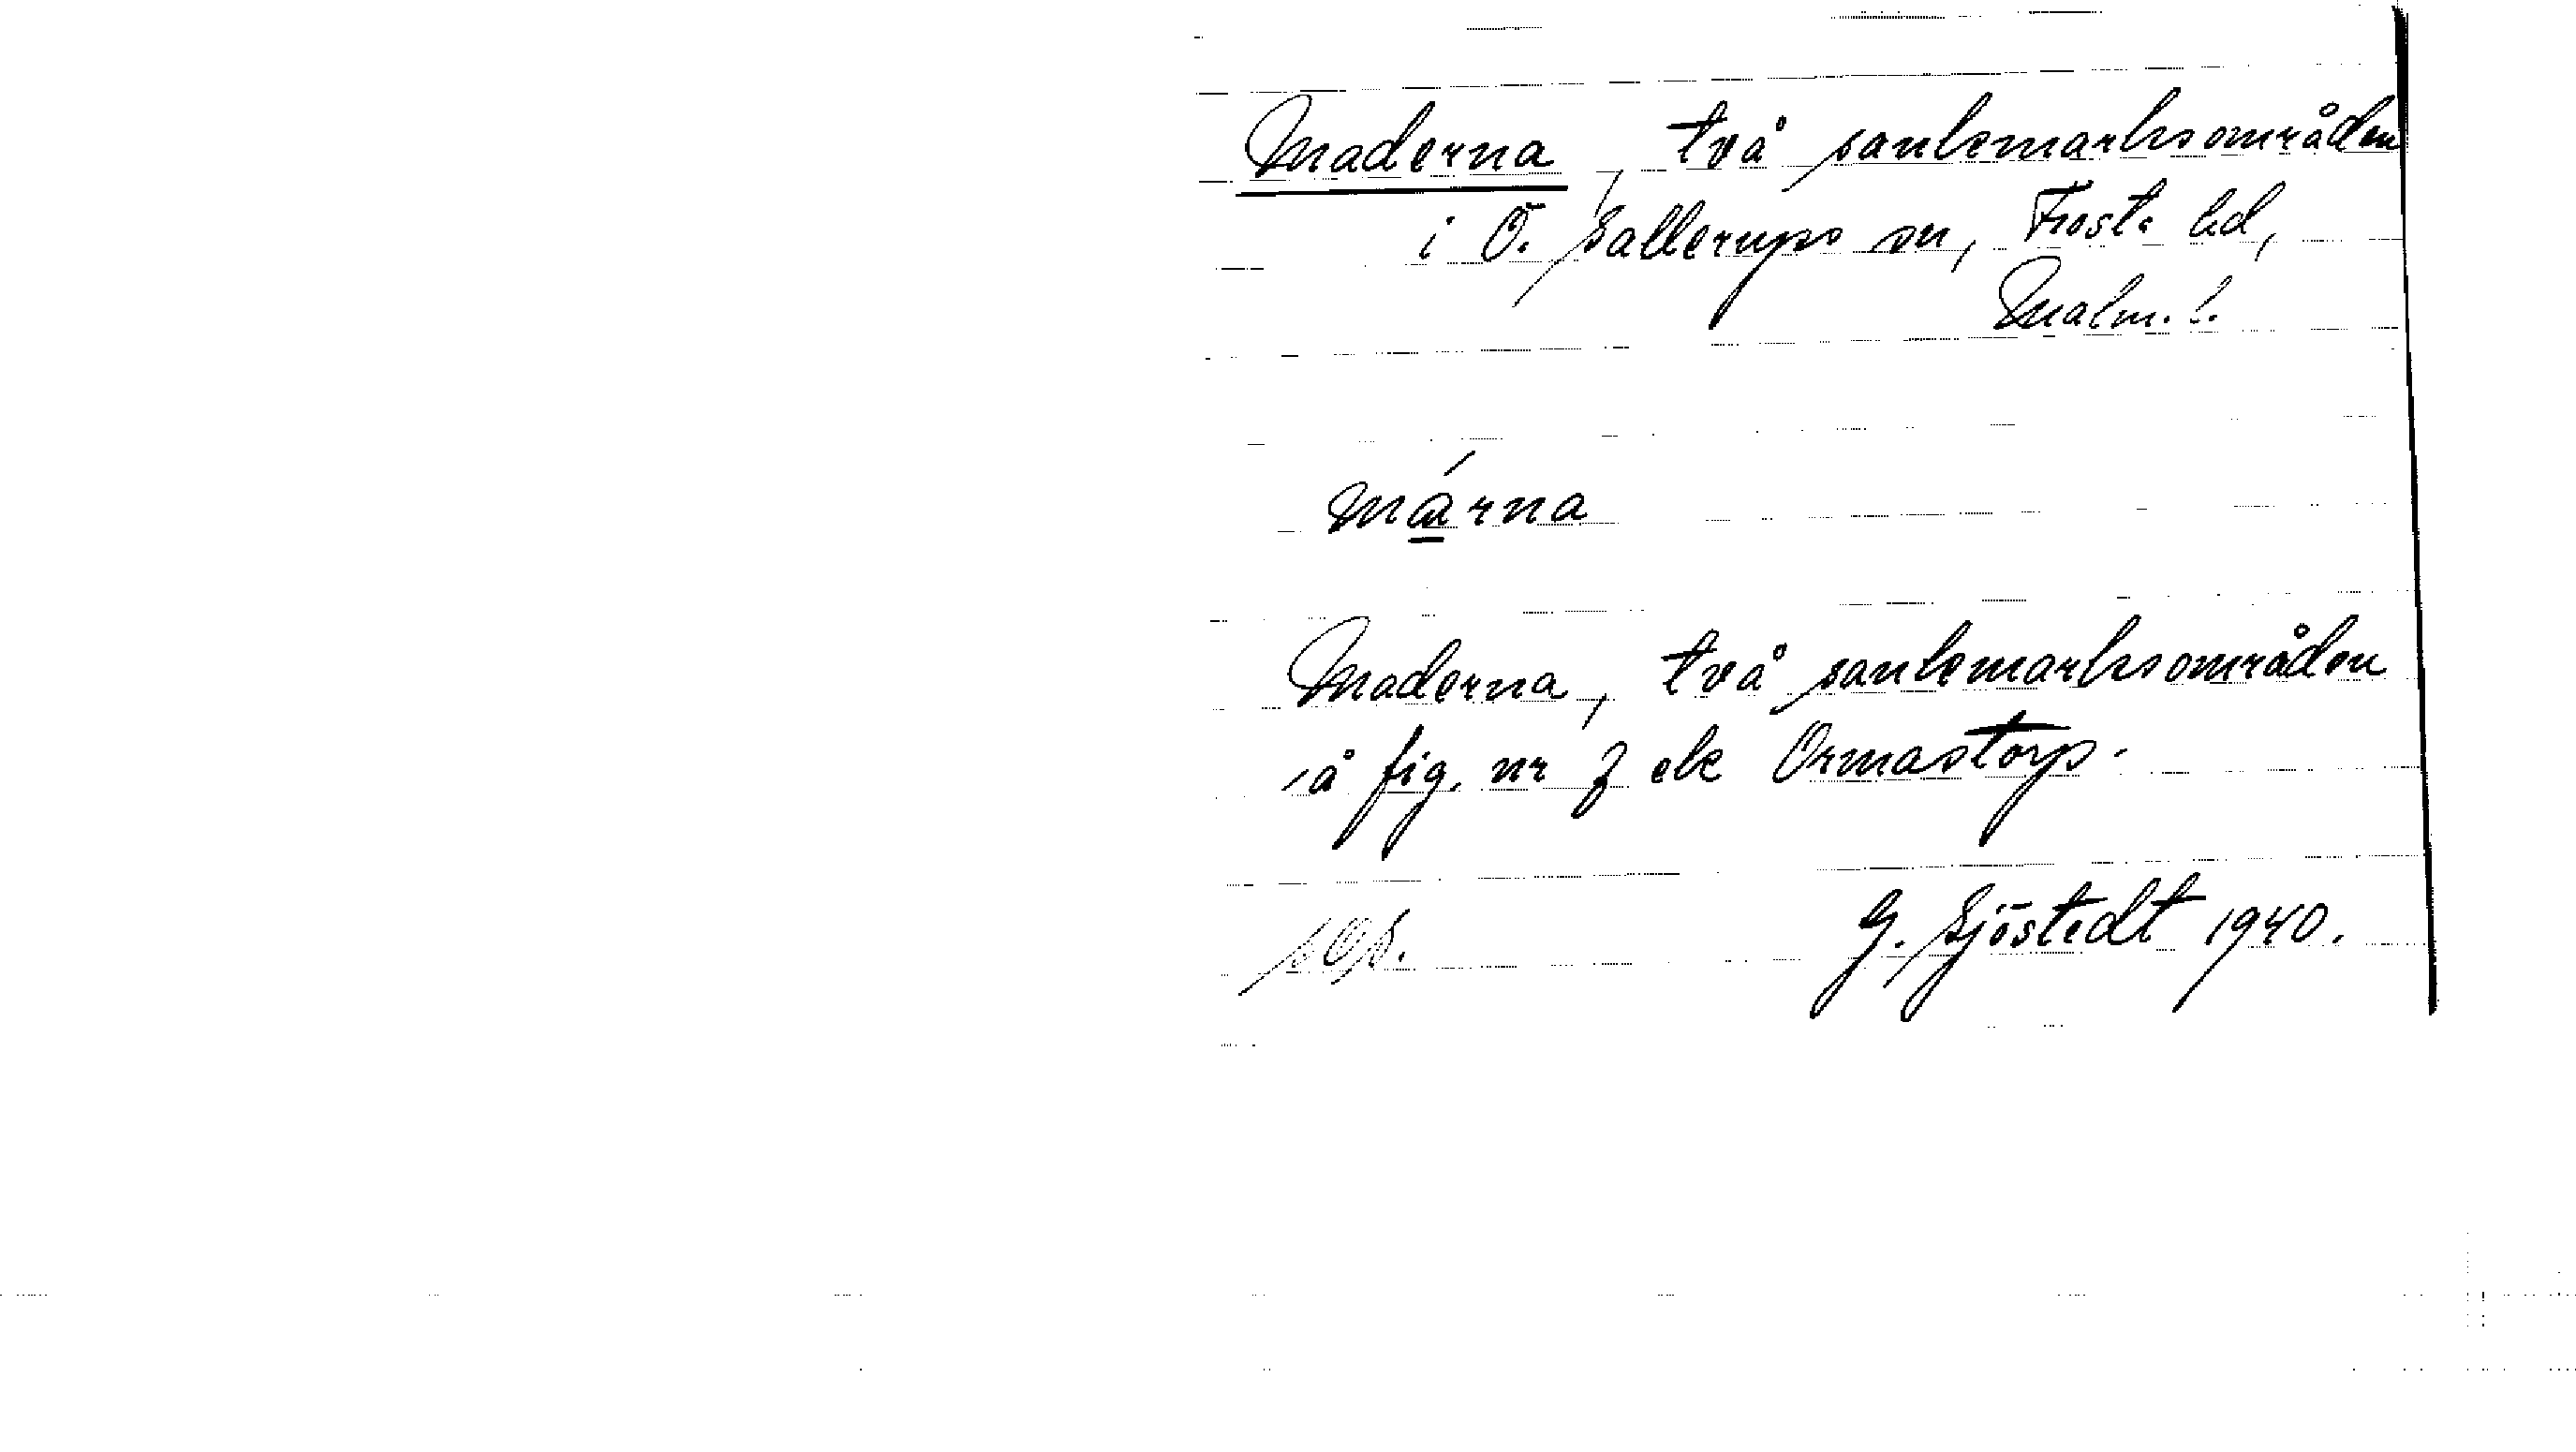 Maderna, två sankmarksområden
i Ö. Sallerups sn, Frosta hd,
Malm. l.
márna
Maderna, två sankmarksområden
å fig. nr 3 ek Ormastorp.
G. Sjöstedt 1940.